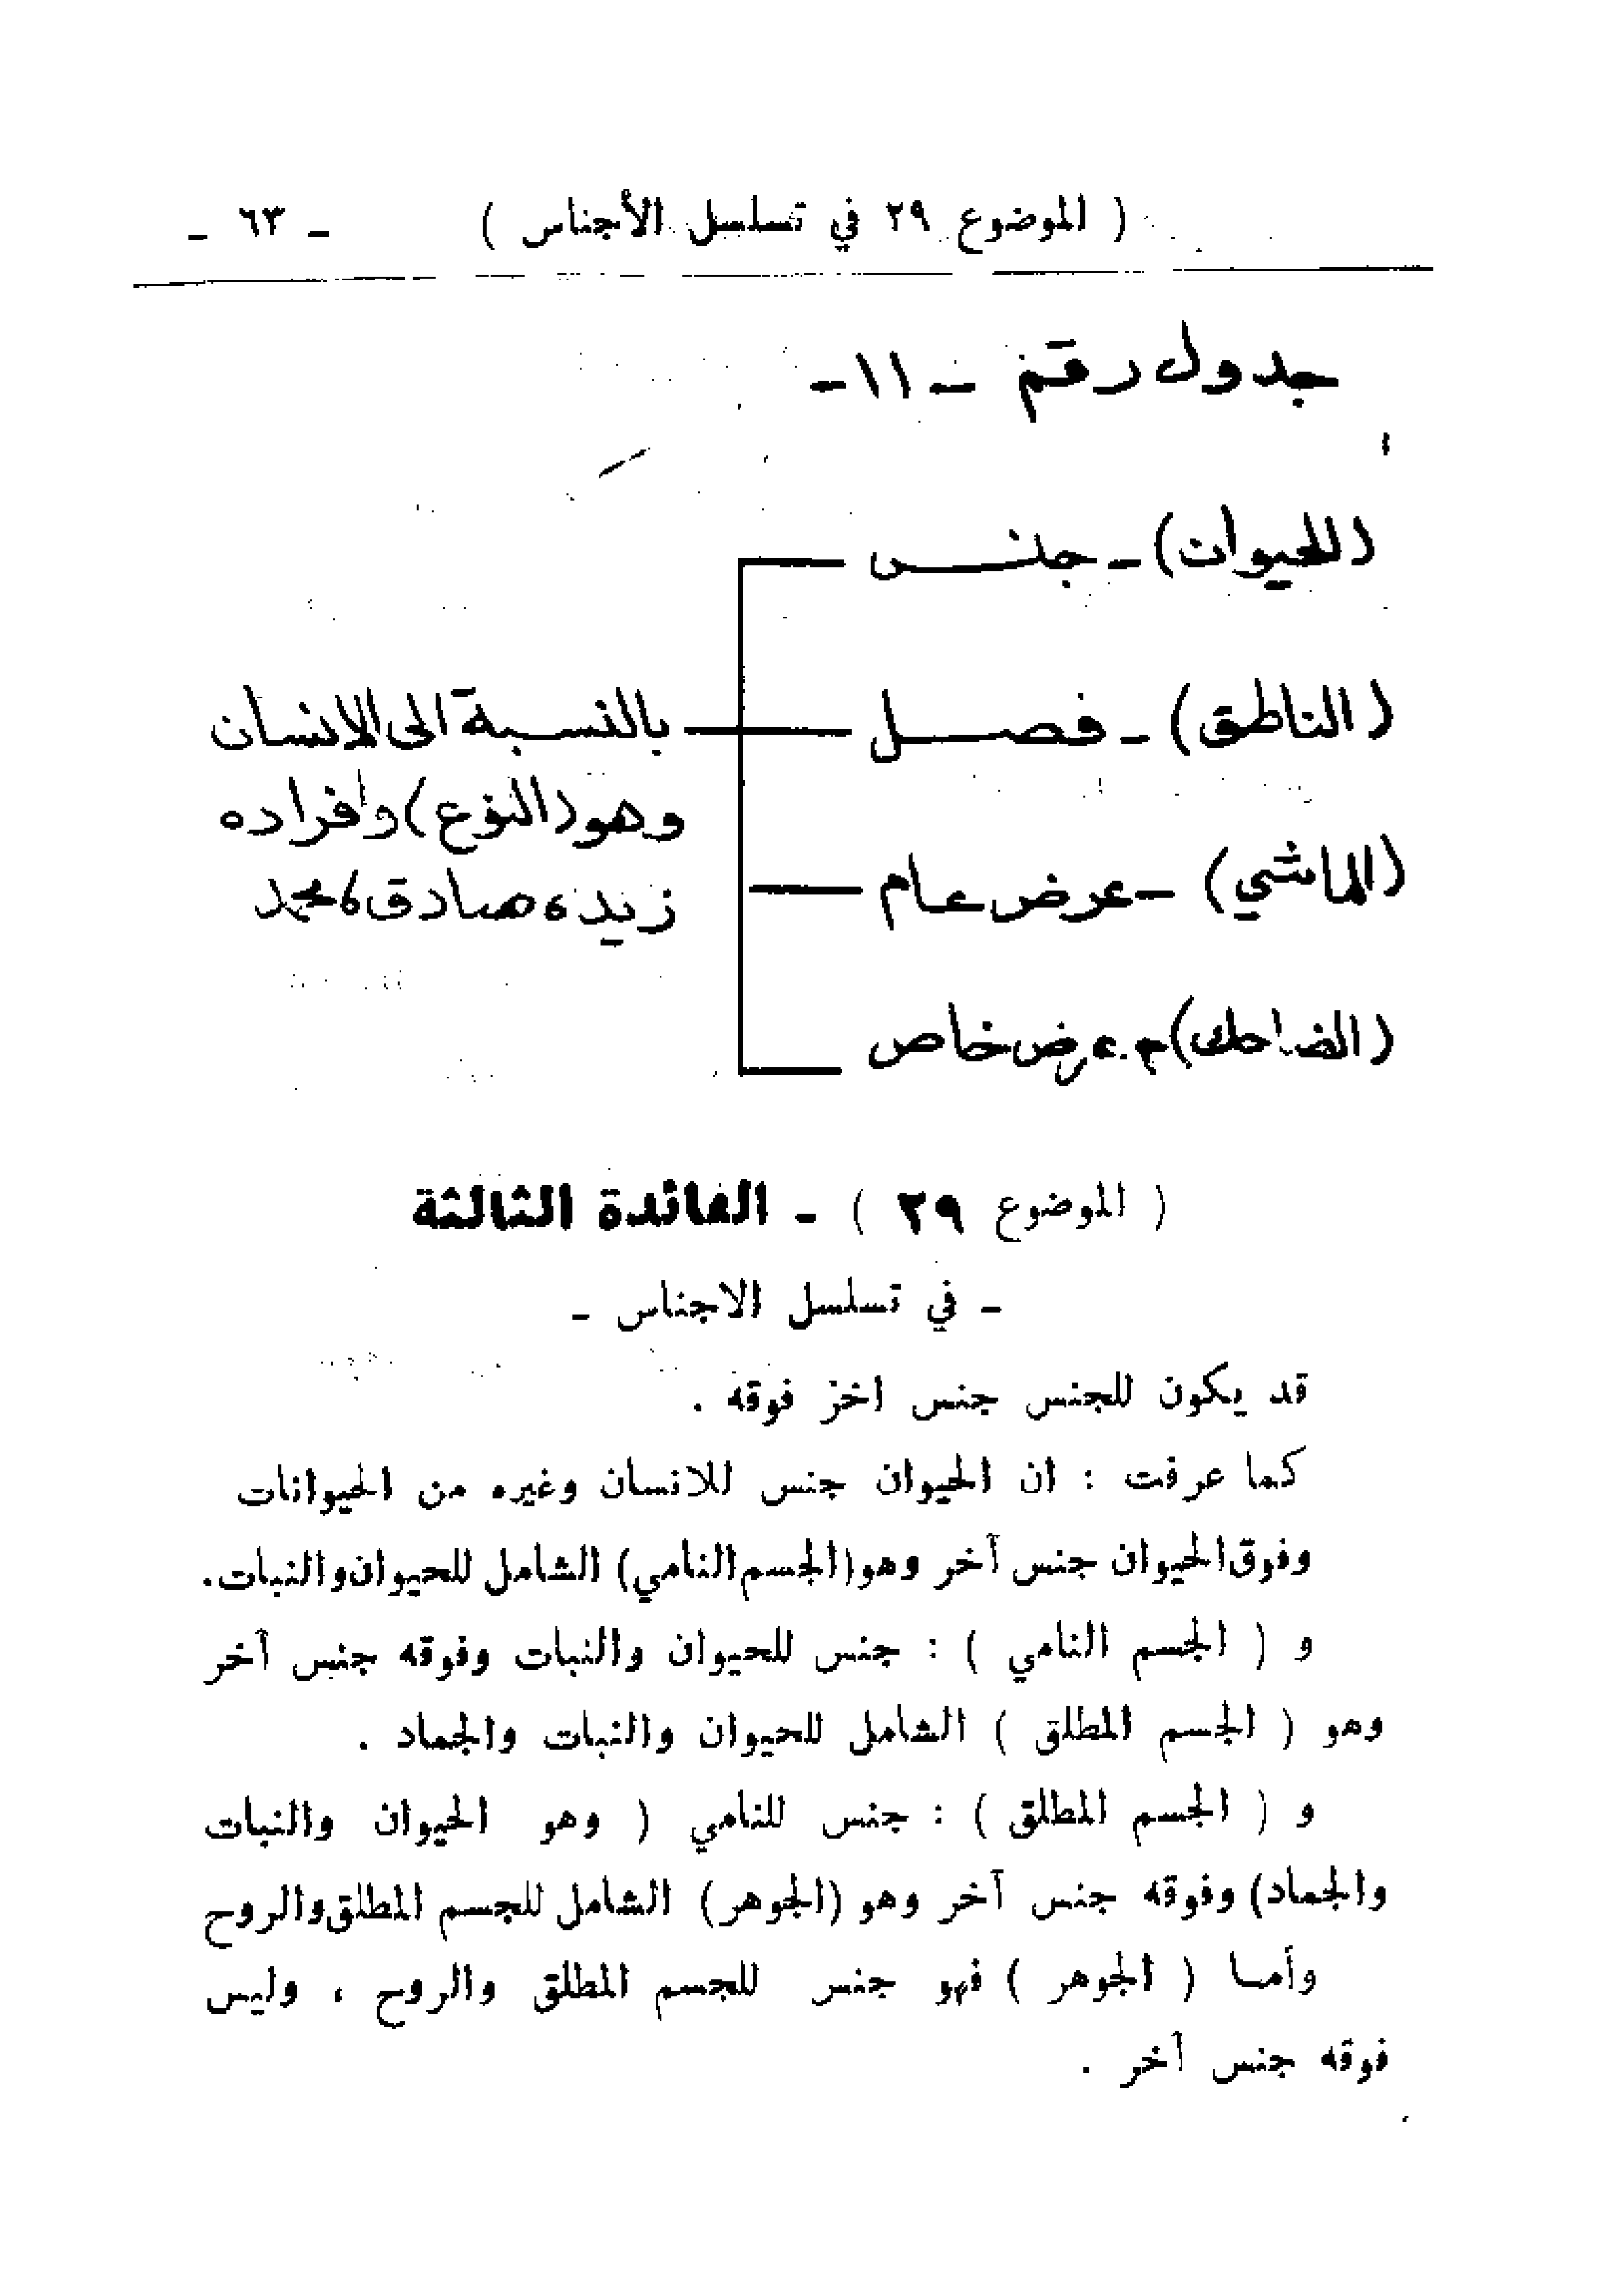 ( الموضوع ٢٩ في تسلسل الأجناس ) - ٦٣ -
جدول رقم - ١١ -
(الحيوان) - جنس
(الناطق) - فصل
(الماشي) - عرض عام
(الضاحك) - عرض خاص
بالنسبة الى الانسان
وهو (النوع) وافراده
زيد، صادق، محمد
( الموضوع ٢٩ ) - الفائدة الثالثة
- في تسلسل الاجناس -
قد يكون للجنس جنس اخر فوقه .
كما عرفت : ان الحيوان جنس للانسان وغيره من الحيوانات
وفوق الحيوان جنس آخر وهو (الجسم النامي) الشامل للحيوان والنبات.
و ( الجسم النامي ) : جنس للحيوان والنبات وفوقه جنس آخر
وهو ( الجسم المطلق ) الشامل للحيوان والنبات والجماد .
و ( الجسم المطلق ) : جنس للنامي ( وهو الحيوان والنبات
والجماد) وفوقه جنس آخر وهو (الجوهر) الشامل للجسم المطلق والروح
وأما ( الجوهر ) فهو جنس للجسم المطلق والروح ، وليس
فوقه جنس آخر .